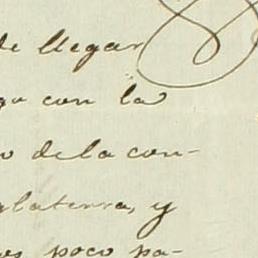 de llegar
con la
o de la con-
glaterra, y
os poco pa-